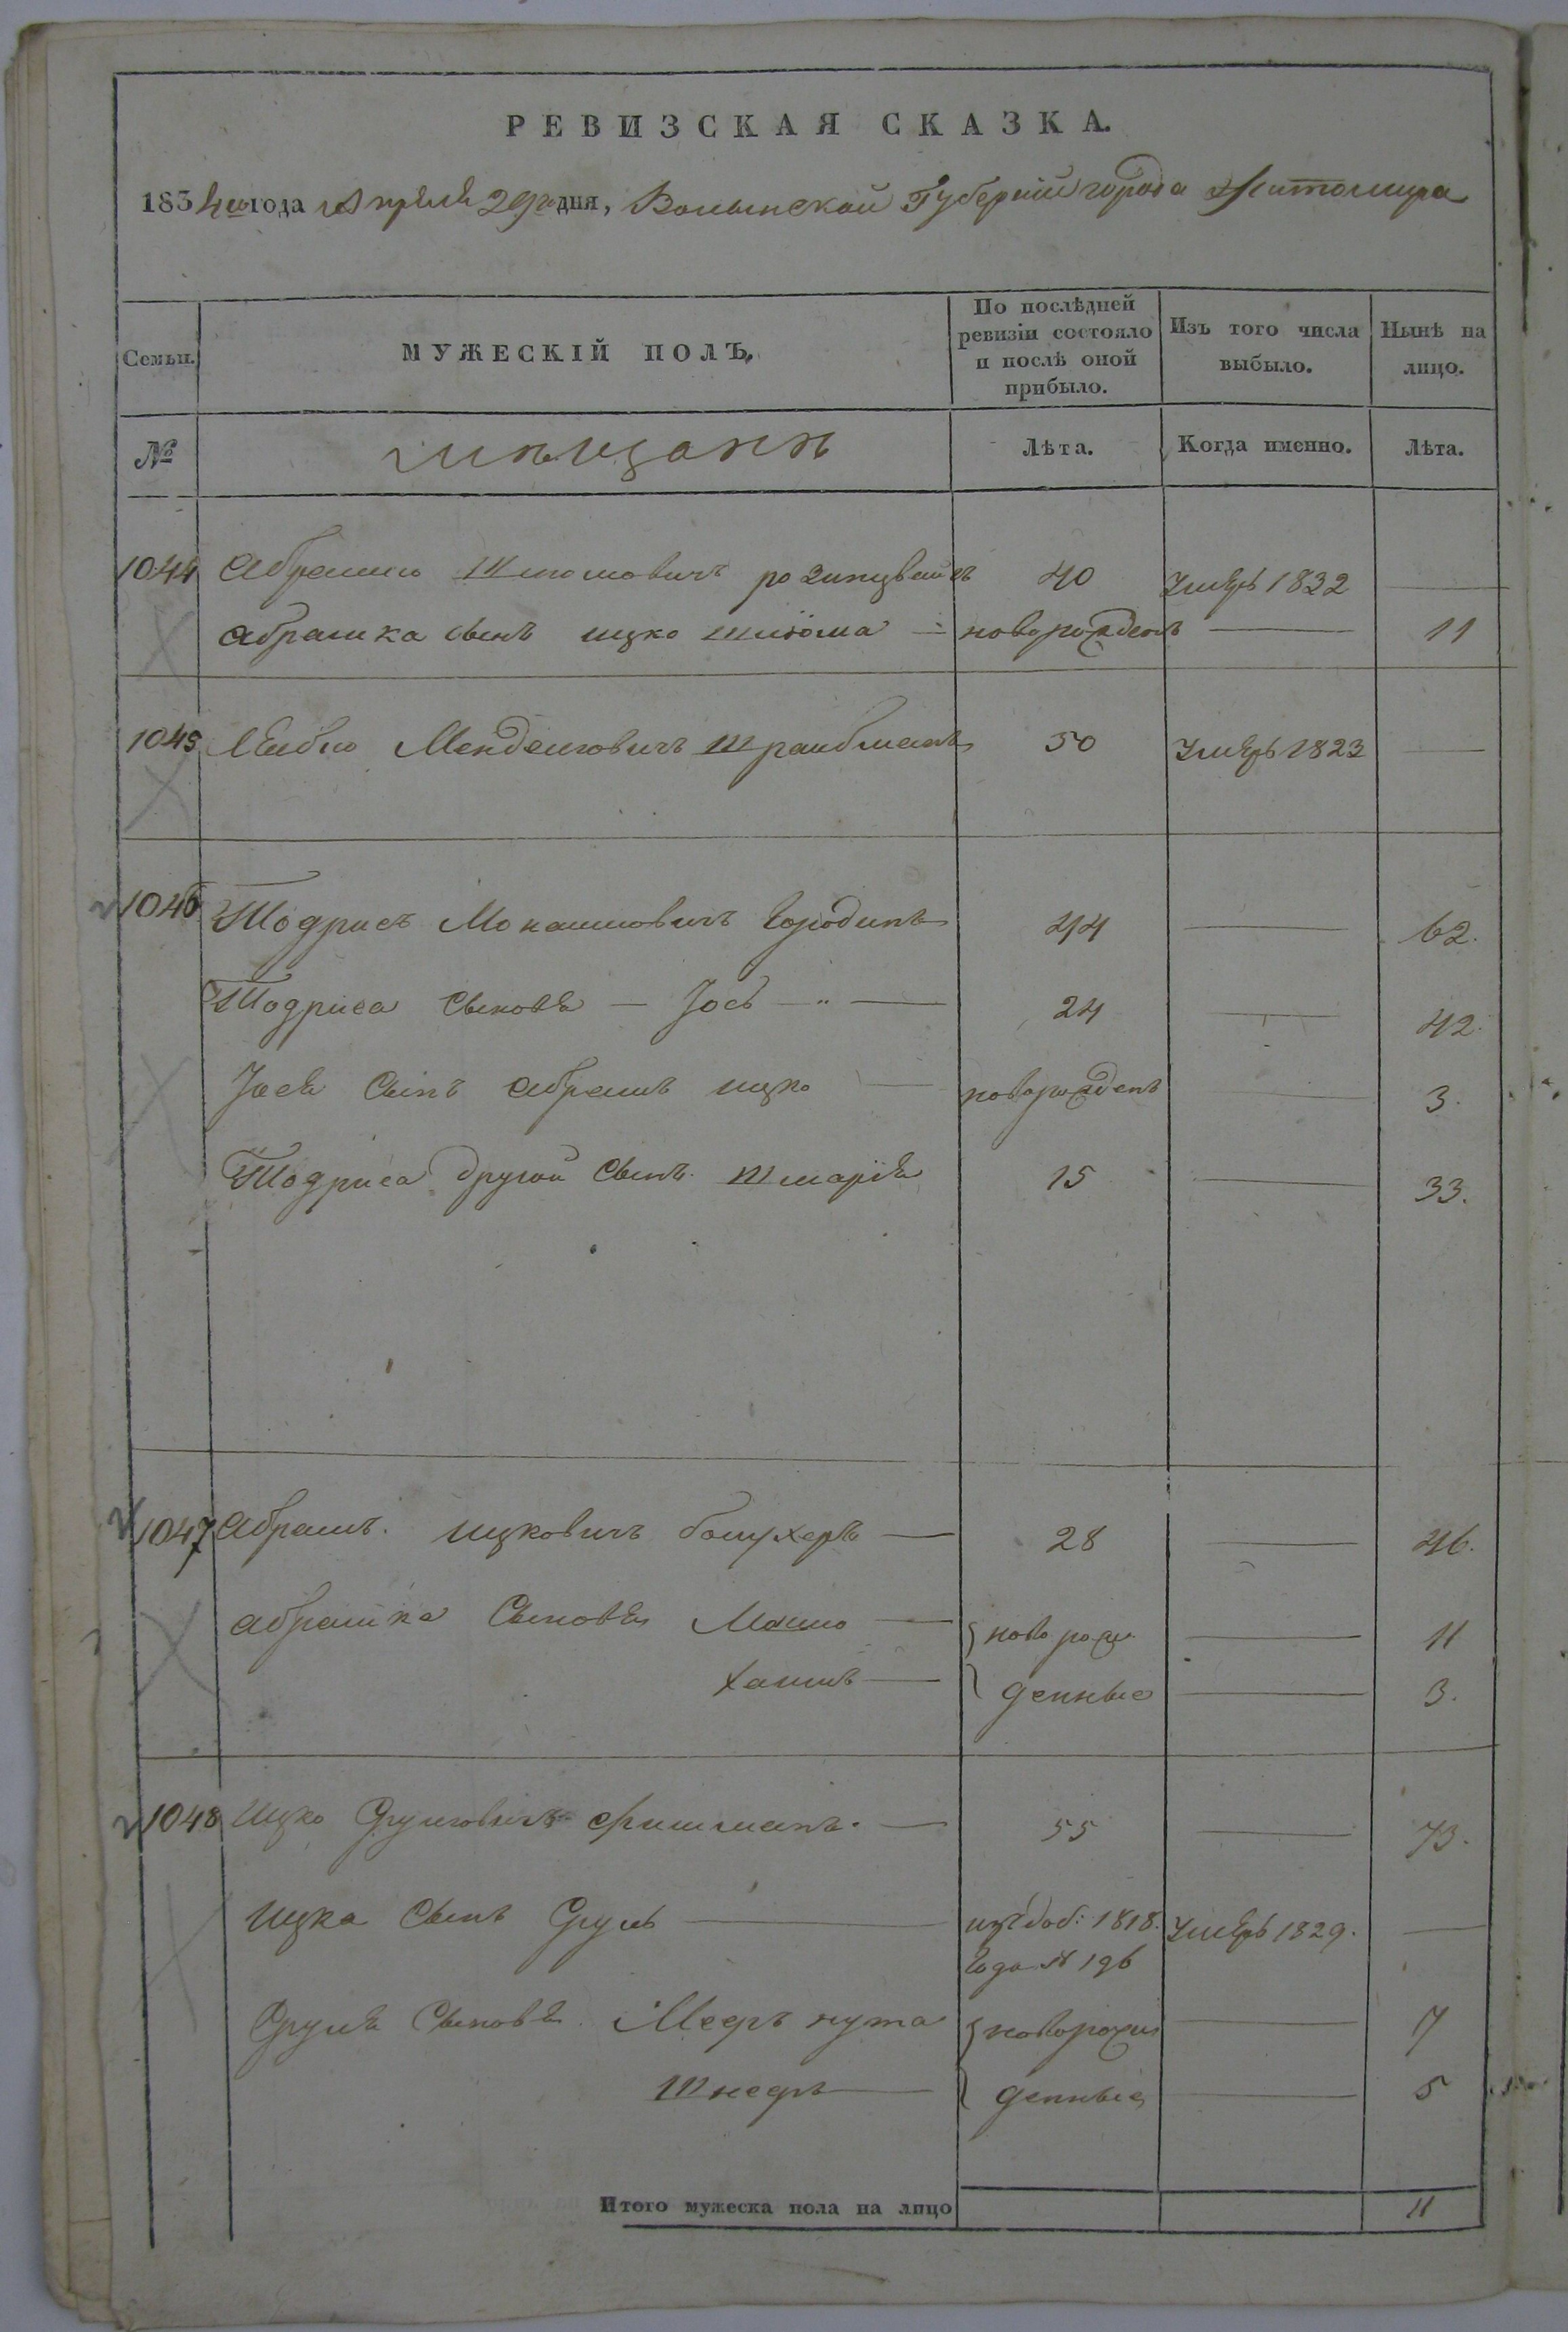 РЕВИЗСКАЯ СКАЗКА.
1834го года Апреля 29го дня, Волынской Губернии города Житомира
Семьи. МУЖЕСКІЙ ПОЛЪ. По послѣдней ревизіи состояло и послѣ оной прибыло. Изъ того числа выбыло. Нынѣ на лицо.
№ мѣщанѣ Лѣта. Когда именно. Лѣта.
1044 Абрамко Шліомовичъ розинцвайгъ 40 Умеръ 1832
Абрамка сынъ ицко шліома новорожденъ 11
1045 Лейбко Менделіовичъ Штраибманъ 50 Умеръ 1823
1046 Тодрисъ Монашовичъ Городинъ 44 62.
Тодриса Сыновя Іось 24 42.
Іося Сынъ Абрамъ ицко новорожденъ 3.
Тодриса другой Сынъ Шмарія 15 33.
1047 Абрамъ Ицковичъ 28 46.
Абрамка Сыновя Мошко новорож 11
Хаимъ денные 3.
1048 Ицко Сруліовичъ Фишманъ. 55 73.
Ицка Сынъ Сруль изъ доб: 1818. Умеръ 1829.
Года № 196
Сруля Сыновя Мееръ нута новорож 7
Шнееръ денные 5
Итого мужеска пола на лицо 11